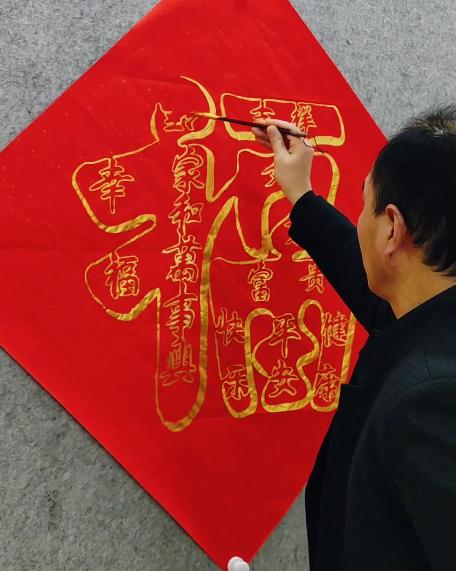 吉祥
家和萬事興
幸福
富贵
快乐
平安
健康